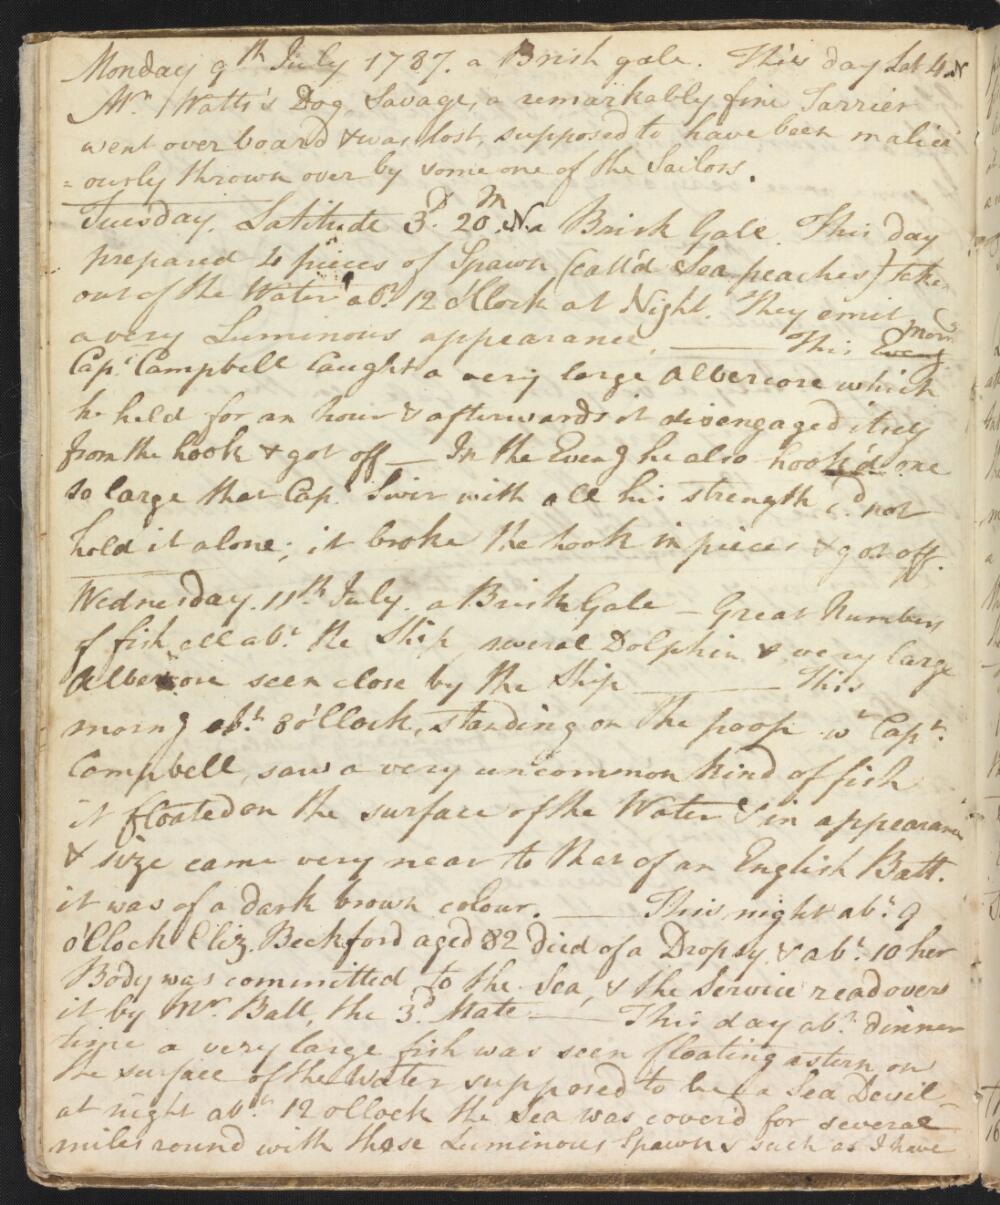 Monday 9th July 1787. a Brisk gale. This day Lat 4. N
Mr. Watts's Dog, Savage, a remarkably fine Tarrier
went over board & was lost, supposed to have been malici
=ously thrown over by some one of the Sailors.
Tuesday. Latitude 3d. 20m N. a Brisk Gale. This day
prepared 4 pieces of Spawn (call'd Sea peaches) taken
out of the Water abt. 12 o'Clock at Night. They emit
a very Luminous appearance. —— This Eveng Morng
Capt. Campbell Caught a very large Albercore which
he held for an hour & afterwards it disengaged itself
from the hook & got off — In the Eveng he also hook'd one
so large that Capt. Swir with all his strength cd. not
hold it alone; it broke the hook in pieces & got off.
Wednesday. 11th July. a Brisk Gale — Great Numbers
of fish all abt. the Ship, several Dolphin & very large
Albercore seen close by the Ship —— This
morng abt. 8 o'Clock, standing on the poop wt. Capt.
Campbell, saw a very uncommon kind of fish
it floated on the surface of the Water & in appearance
& size came very near to that of an English Batt.
it was of a dark brown colour. —— This night abt. 9
o'Clock Eliz. Beckford aged 82 died of a Dropsy & abt. 10 her
Body was committed to the Sea, & the Service read over
it by Mr. Ball, the 3d. Mate —— This day abt. dinner
time a very large fish was seen floating astern on
the surface of the Water supposed to be a Sea Devil —
at night abt. 12 o'Clock the Sea was cover'd for several
miles round with those Luminous Spawns such as I have